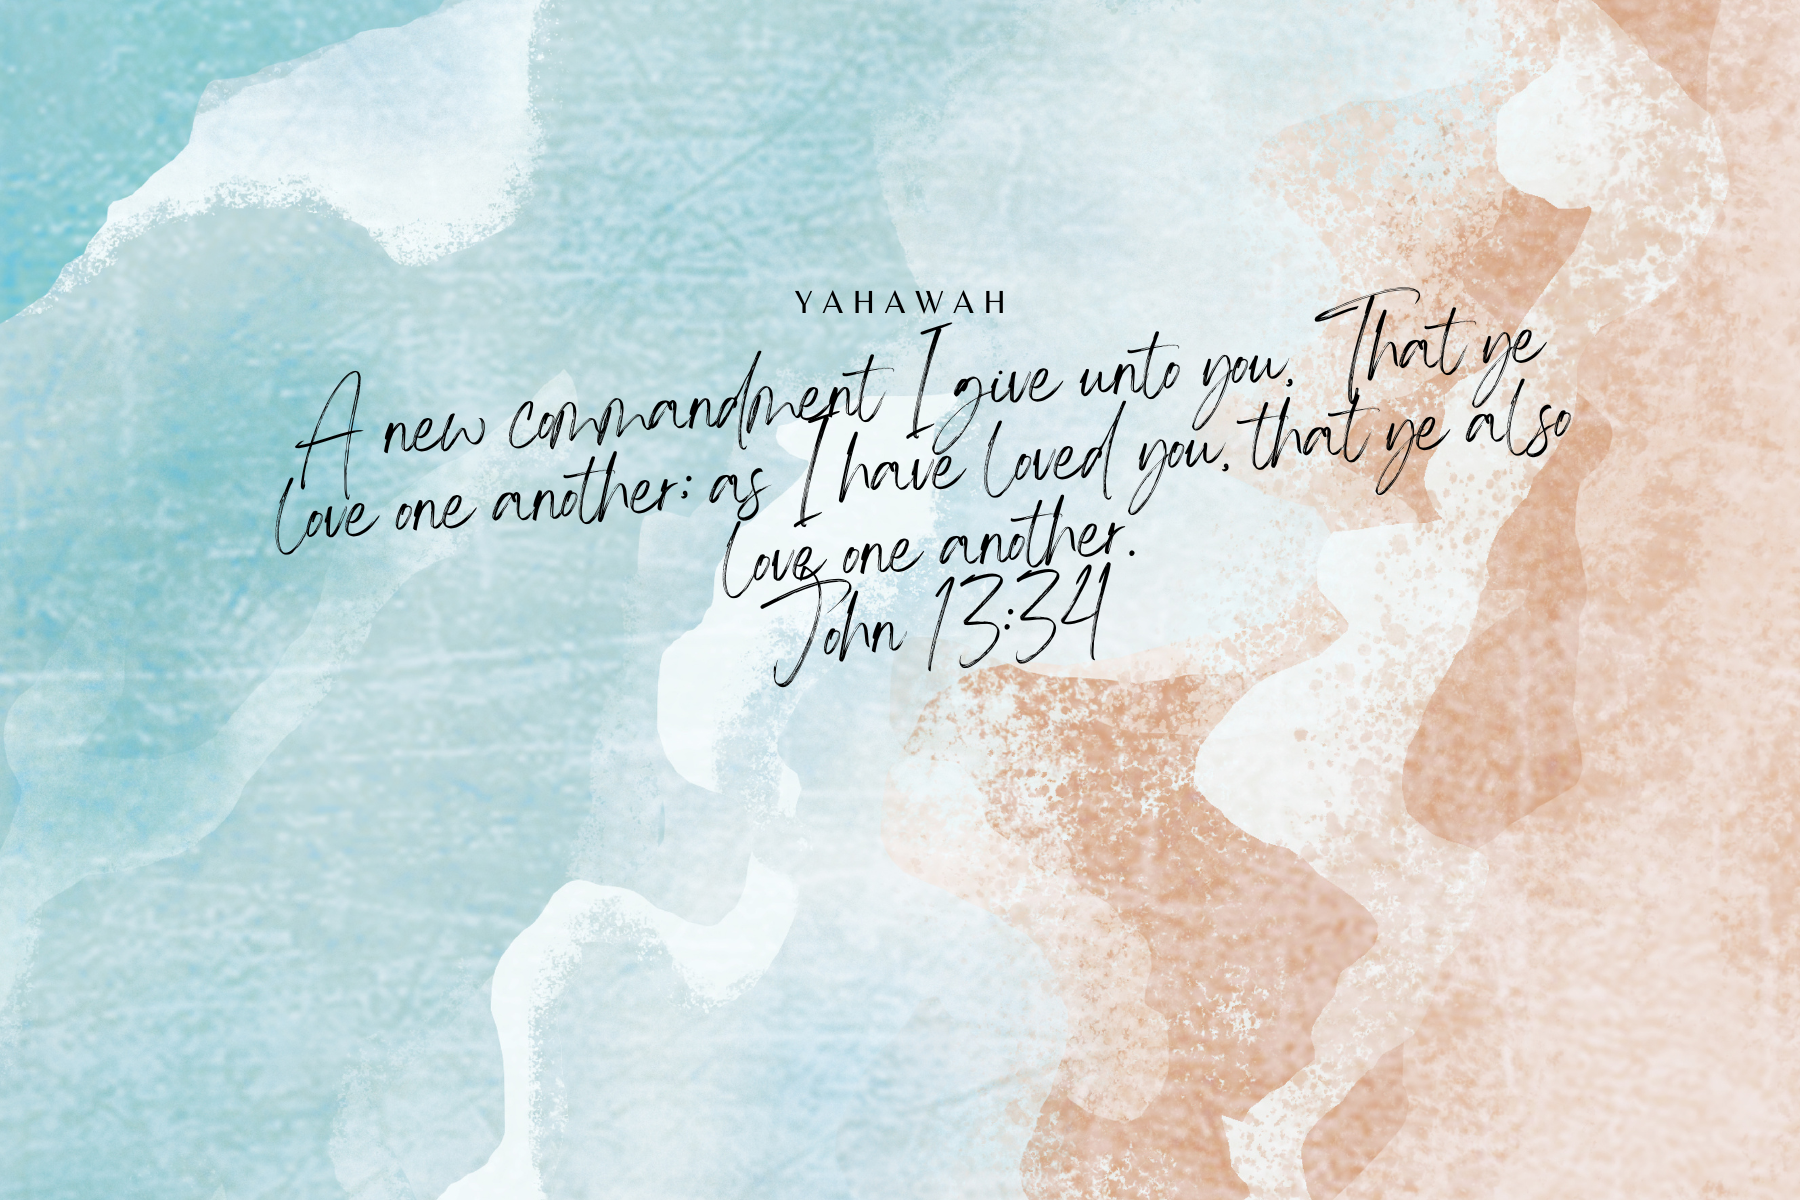 YAHAWAH
A new commandment I give unto you, That ye
love one another; as I have loved you, that ye also
love one another.
John 13:34